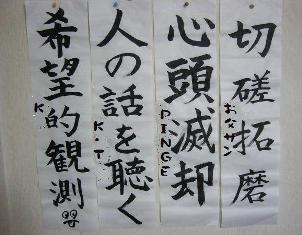 切磋拓磨
おなサン
心頭滅却
PINGE
人の話を聴く
K・T
希望的観測
K